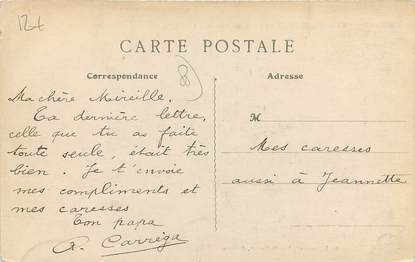 12+
CARTE POSTALE
Correspondance
8
Adresse
Ma chère Mireille.
Ta dernière lettre,
celle que tu as faite
toute seule, était très
bien. Je t'envoie
mes compliments et
mes caresses
Ton papa
A. Carréga
M
Mes caresses
aussi à Jeannette